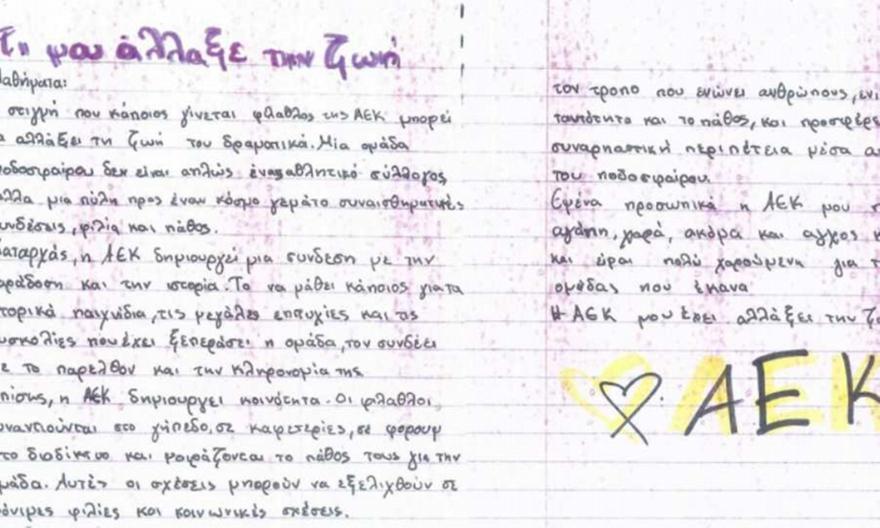 μου άλλαξε την ζωή
μαθήματα:
στιγμή που κάποιος γίνεται φίλαθλος της ΑΕΚ μπορεί
αλλάξει τη ζωή του δραματικά. Μία ομάδα
ποδοσφαίρου δεν είναι απλώς ένας αθλητικό σύλλογος,
αλλα μια πύλη προς έναν κόσμο γεμάτο συναισθηματικές
συνδέσεις, φιλία και πάθος.
Καταρχάς, η ΑΕΚ δημιουργεί μια συνδεση με την
παράδοση και την ιστορία. Το να μάθει κάποιος για τα
ιστορικά παιχνίδια, τις μεγάλες επιτυχίες και τις
δυσκολίες που έχει ξεπεράσει η ομάδα, τον συνδέει
με το παρελθον και την κληρονομία της
Επίσης, η ΑΕΚ δημιουργει κοινότητα. Οι φιλαθλοι
συναντιούνται στο γήπεδο, σε καφετερίες, σε φορουμ
στο διαδίκτυο και μοιράζονται το πάθος τους για την
ομάδα. Αυτές οι σχέσεις μπορούν να εξελιχθούν σε
μόνιμες φιλίες και κοινωνικές σχέσεις.
τον τροπο που ενώνει ανθρώπους,
ταυτότητα και το πάθος, και προσφέρε
συναρπαστική περιπέτεια μέσα
του ποδοσφαίρου.
Εμένα προσωπικά η ΑΕΚ μου
αγάπη, χαρά, ακόμα και αγχος
και είμαι πολύ χαρούμενη για
ομάδας που έκανα
Η ΑΕΚ μου έχει αλλάξει την
ΑΕΚ